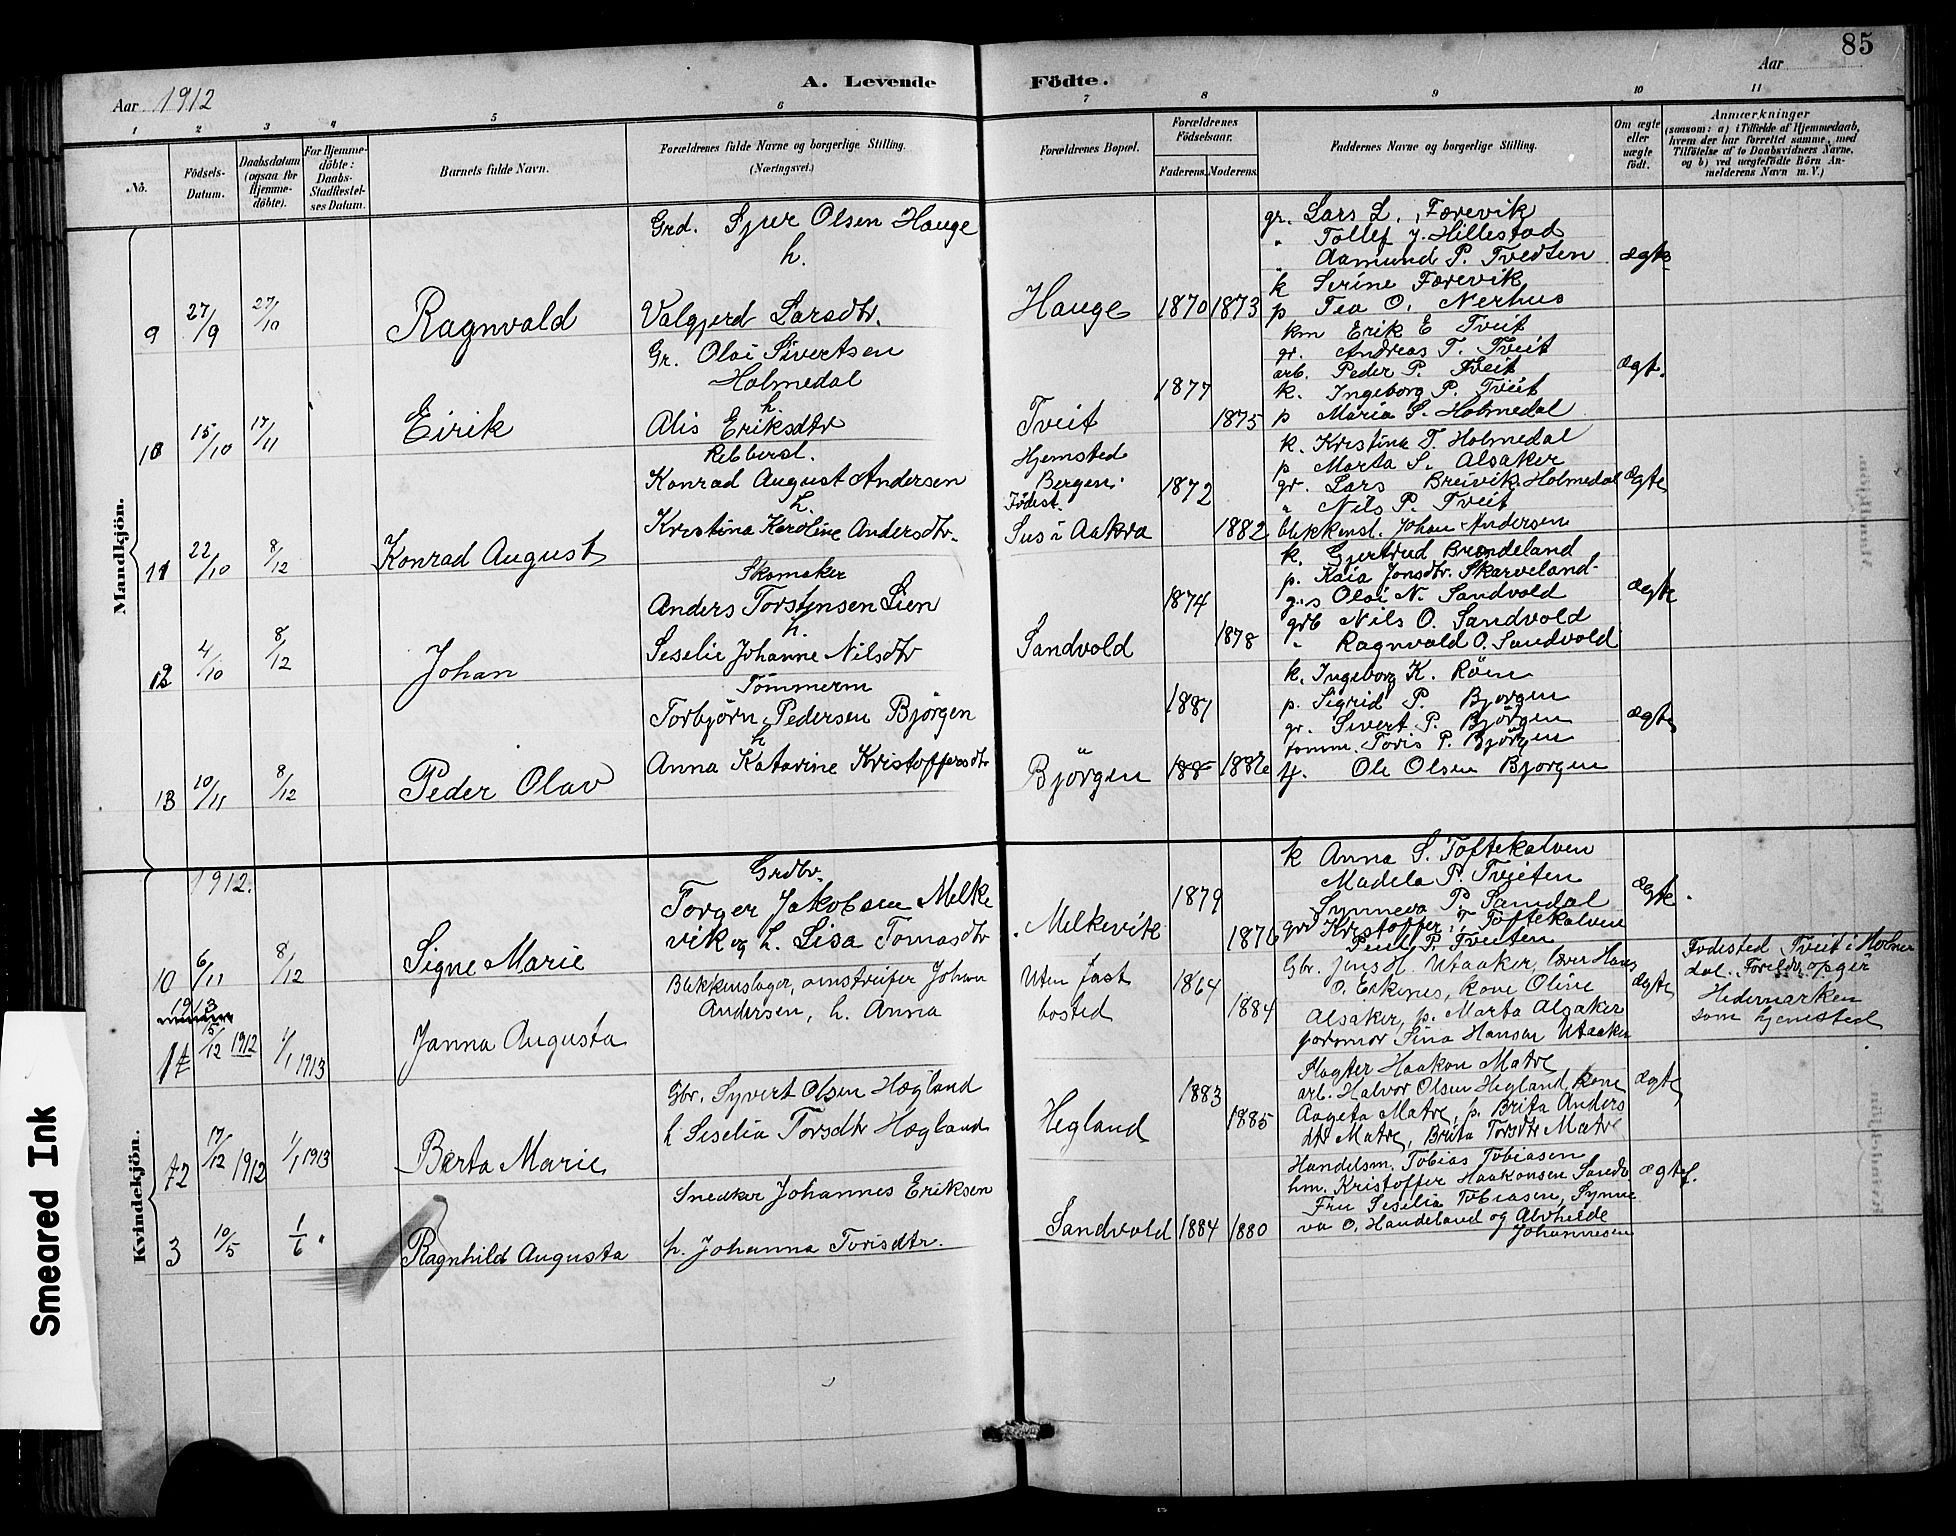 85
A. Levende Födte.
Aar 1912
Aar
1 2 3 4 5 6 7 8 9 10 11
No.
Födsels-Datum.
Daabsdatum (ogsaa for Hjemme-döbte).
For Hjemme-döbte: Daabs-Stadfæstel-ses Datum.
Barnets fulde Navn.
Forældrenes fulde Navne og borgerlige Stilling.
(Næringsvei.)
Forældrenes Bopæl.
Forældrenes Födselsaar.
Faderens. Moderens.
Faddernes Navne og borgerlige Stilling.
Om ægte eller uægte födt.
Anmærkninger
(saasom: a) i Tilfælde af Hjemmedaab,
hvem der har forrettet samme, med
Tilföielse af to Daabsvidners Navne,
og b) ved uægtefödte Börn An-
melderens Navn m. V.)
Mandkjön.
9 27/9 27/10 Ragnvald
Grd. Sjur Olsen Hauge
h.
Valgjerd Larsdtr.
Hauge 1870 1873
gr. Lars L. Færevik
" Tollef J. Hillestad
" Aamund P. Tvedten
k Serine Færevik
p Tea O. Nerhus
ægte
10 15/10 17/11 Eirik
Gr. Oloi Sivertsen
Holmedal
h.
Alis Eriksdtr
Tveit 1877 1875
km Erik E Tveit
gr. Andreas T. Tveit
arb. Peder P. Tveit
k. Ingeborg P. Tveit
p Maria S. Holmedal
Ægt.
11 22/10 8/12 Konrad August
Rebbersl.
Konrad August Andersen
h.
Kristina Karoline Andersdtr.
Hjemsted
Bergen.
Födest.
Sus i Aakra
1872 1882
k. Kristina T. Holmedal
p Marta S. Alsaker
gr. Lars Breivik, Holmedal
" Nils P. Tveit
blikkensl. Johan Andersen
Ægte
12 4/10 8/12 Johan
Skomaker
Anders Torstensen Lien
h.
Seselie Johanne Nilsdtr
Sandvold 1874 1878
k. Gjertrud Brændeland
p. Kaia Jonsdtr. Skarveland
g.s Oloi N. Sandvold
grb Nils O. Sandvold
" Ragnvald O. Sandvold
Ægte
13 10/11 8/12 Peder Olav
Tömmerm
Torbjörn Pedersen Bjørgen
h
Anna Katarine Kristoffersdtr
Björgen 1881 188 1886
k. Ingeborg K. Röen
p. Sigrid P. Bjørgen
gr. Sivert P. Bjørgen
tömm. Toris P. Bjørgen
tj. Ole Olsen Bjørgen
Ægte
Kvindekjön.
1912.
10 6/11 8/12 Signe Marie
Grdbr.
Torger Jakobsen Melke
vik og h. Lisa Tomasdtr
Melkevik 1879 1876
k Anna S. Toftekalven
Madela P. Tveiten
Synneva P. Sandal
grd Kristoffer T Toftekalven
Peul P. Tveiten
Ægte.
1913
15/12 1912 1/1 1913 Janna Augusta
Blikkenslager, omstreifer Johan
Andersen, h. Anna
Uten fast
bosted
1864 1884
Gbr. Jens H. Utaaker, Hans
O. Eskenes, kone Oline
Alsaker, p. Marta Alsaker
jormor Sina Hansen Utaaker
Ægte
Fodested Tveit i Holme
dal. Foreldr. opgir
Hedemarken
som hjemsted
17/12 1912 1/1 1913 Berta Marie
Gbr. Syvert Olsen Hægland
h Seselia Torsdtr Hægland
Hegland 1883 1885
Slagter Haakon Matre
arb. Halvor Olsen Hegland, kone
Aageta Matre, p. Brita Anders
dtr Matre, Brita Torsdtr Matre
Ægte
3 10/5 1/6. Ragnhild Augusta
Snedker Johannes Eriksen
h. Johanna Torisdtr.
Sandvold 1884 1880
Handelsm. Tobias Tobiasen
hm. Kristoffer Haakonsen Sandv
Fru Seselia Tobiasen, Synne
va O. Handeland og Alvhilde
Johannesen
ægtef.
Smeared Ink